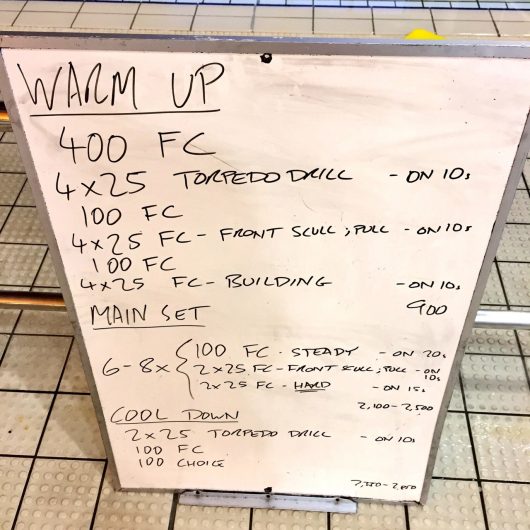 WARM UP
400 FC
4x25 TORPEDO DRILL - ON 10s
100 FC
4x25 FC - FRONT SCULL; PULL - ON 10s
100 FC
4x25 FC - BUILDING - ON 10s
MAIN SET 900
6-8x { 100 FC - STEADY - ON 20s
2x25 FC - FRONT SCULL; PULL - ON 10s
2x25 FC - HARD - ON 15s
2,100-2,500
COOL DOWN
2x25 TORPEDO DRILL - ON 10s
100 FC
100 CHOICE